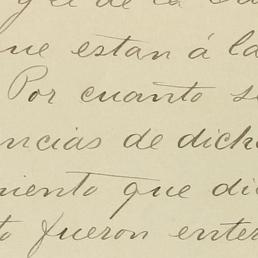 y el de la
que estan á la
Por cuanto se
ncias de dich
miento que di
to fueron enter